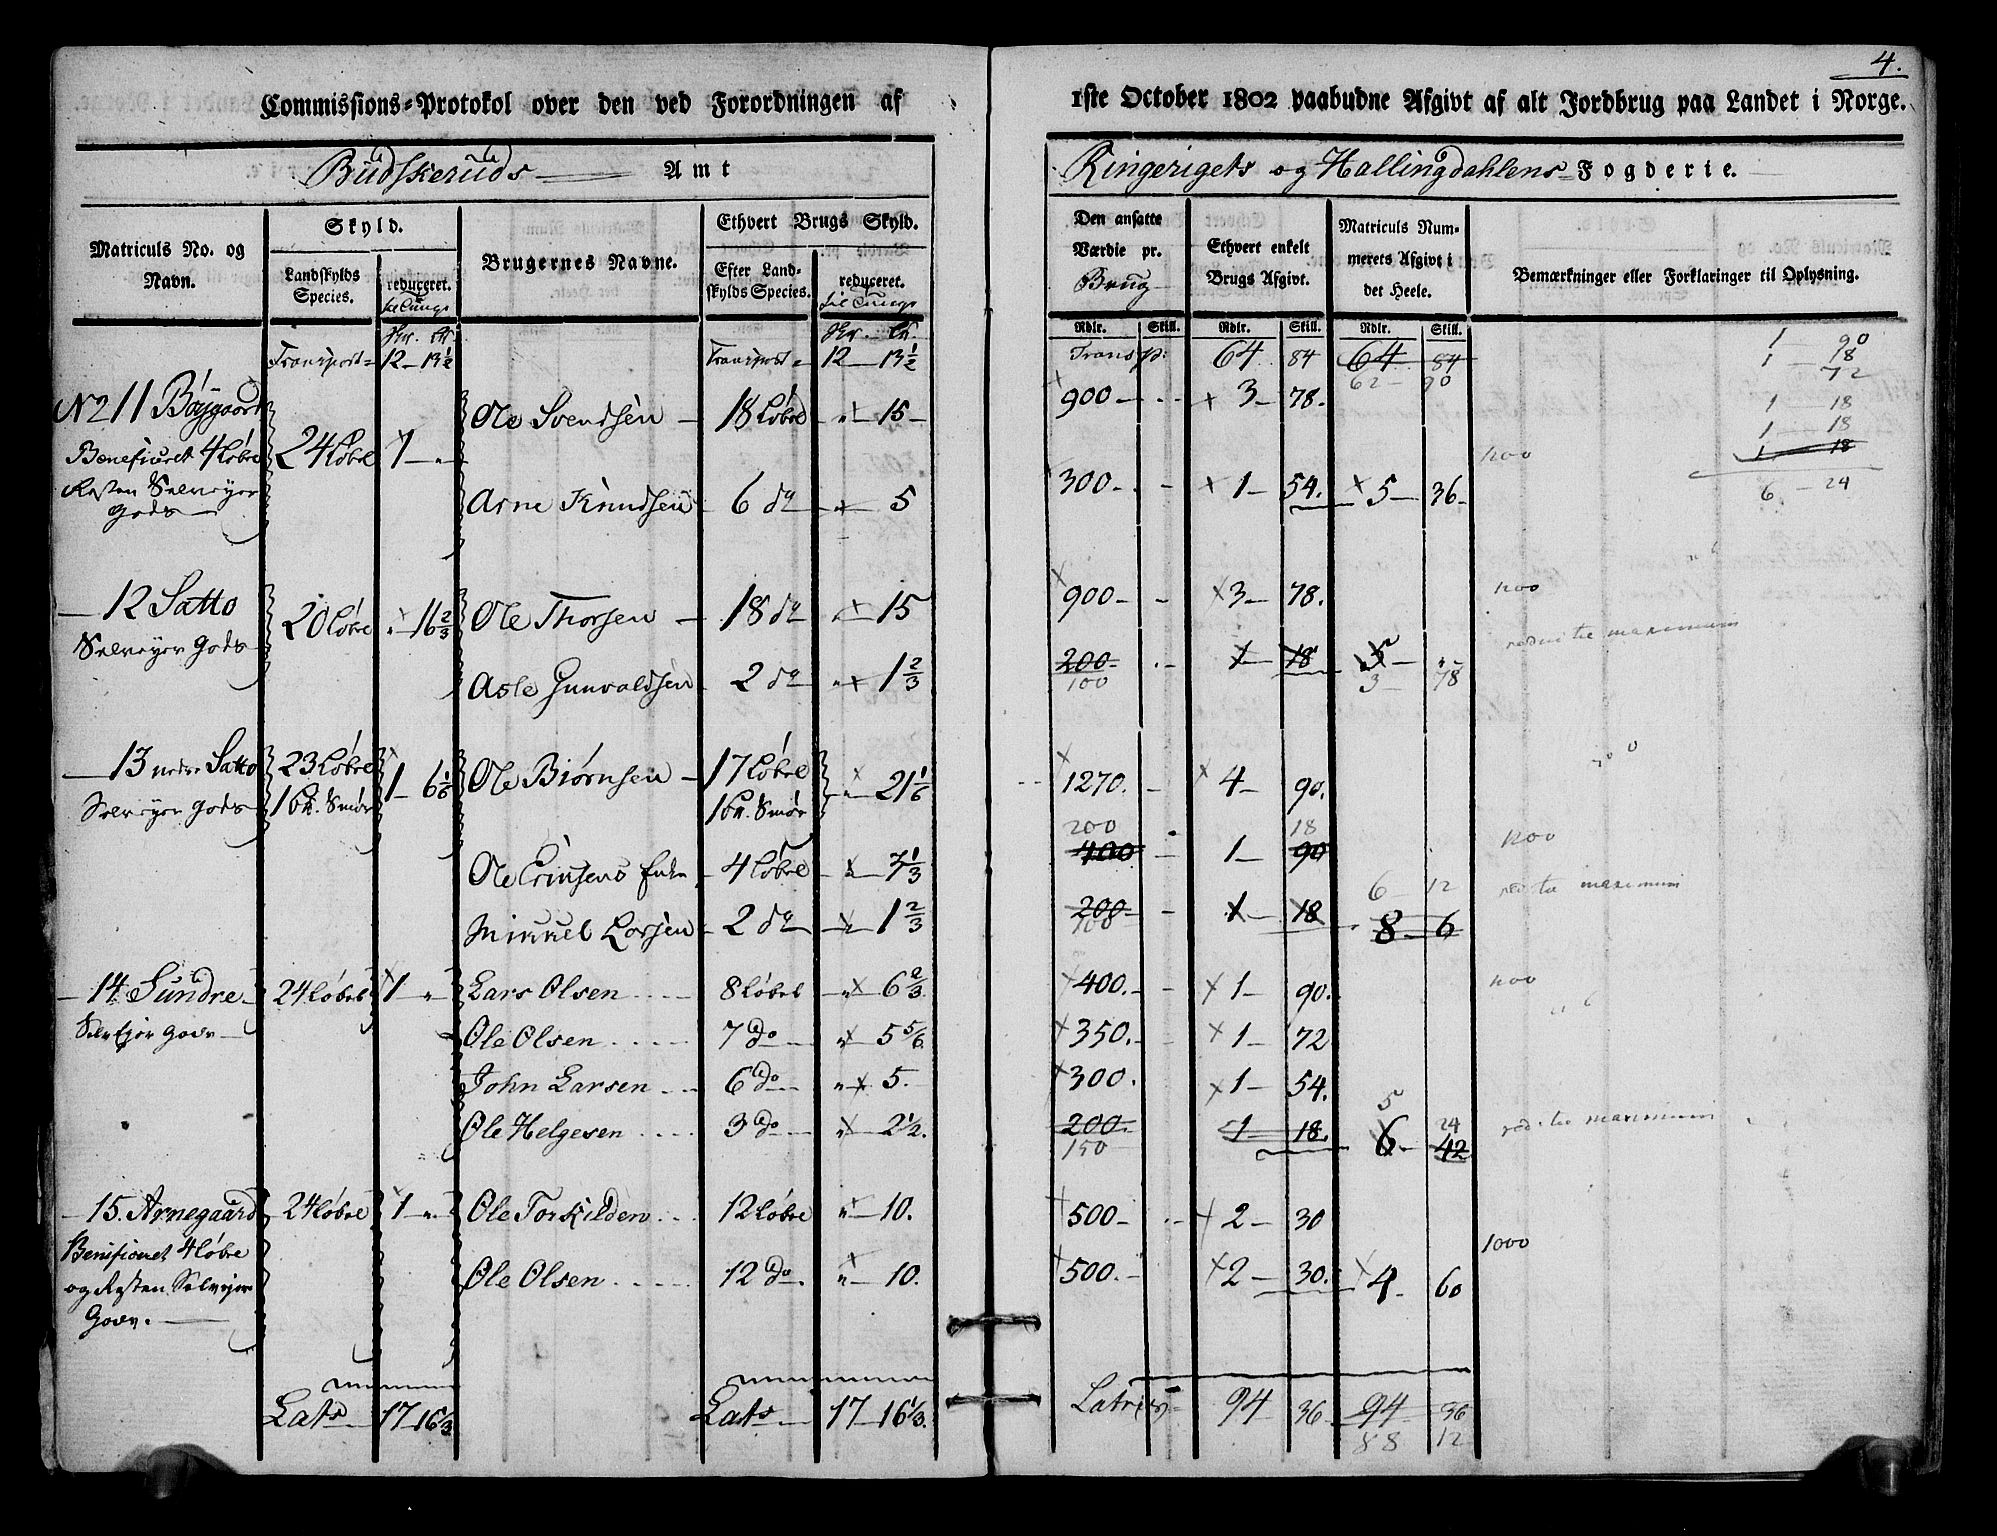 4.
Commissions-Protokol over den ved Forordningen af 1ste October 1802 paabudne Afgivt af alt Jordbrug paa Landet i Norge.
Budskeruds Amt
Ringerigets og Hallingdahlens Fogderie.
Matriculs No. og Navn.
Skyld.
Landskylds Species.
reduceret. til Tunge
Brugernes Navne.
Ethvert Brugs Skyld.
Efter Landskylds Species.
reduceret. til Tunge
Den ansatte Værdie pr. Brug
Ethvert enkelt Brugs Afgivt.
Matriculs Nummerets Afgivt i det Heele.
Bemærkninger eller Forklaringer til Oplysning.
Rdlr. Skill. Rdlr. Skill. Rdlr. Skill.
Transport 12 13½ Transport 12 13½ Transp: 64 84 64 84
62 90
1 90
1 18
72
1 18
1 18
1 18
6 24
No 11 Bøygaard Ole Svendsen 18 Løbe 15 900 3 78.
Beneficeret 4 Løbe 24 Løbe 1 1200
Resten Selveyer Gods Arne Knudsen 6 do 5 300 1 54. 5 36
12 Satto 20 Løbe 16⅔ Ole Thorsen 18 do 15 900 3 78. 1200
Selveyer Gods Asle Gunvaldsen 2 do 1⅔ 200 1 18 5
100 3 78
red. til maximum
13 nedre Satto 23 Løbe 1 6⅙ Ole Biørnsen 17 Løbe 21⅙ 1270. 4 90.
Selveyer Gods 1 Smør 1 Smør
200 18
Ole Enke 4 Løbe 3⅓ 400 1 90 1200
6 12
Mikkel Larsen 2 do 1⅔ 200 1 18 8 6
100
red. til maximum
14 Sundre 24 Løbe 1 Lars Olsen 8 Løbe 6⅔ 400. 1 90. 1200
Selvejer Gods Ole Olsen 7 do 5 5/6 350. 1 72
John Larsen 6 do 5. 300. 1 54.
5 24
Ole Helgesen 3 do 2½. 200. 1 18. 6 42
150
red. til maximum
15. Arnegaard 24 Løbe 1 Ole Torkilden 12 Løbe 10. 500 2 30
Benificeret 4 Løbe 1000
og Resten Selvejer Ole Olsen 12 do. 10. 500. 2 30. 4 60
Gods.
Lats 17 16⅓ Lats 17 16⅓. Latris 94 36 94 36
88 12